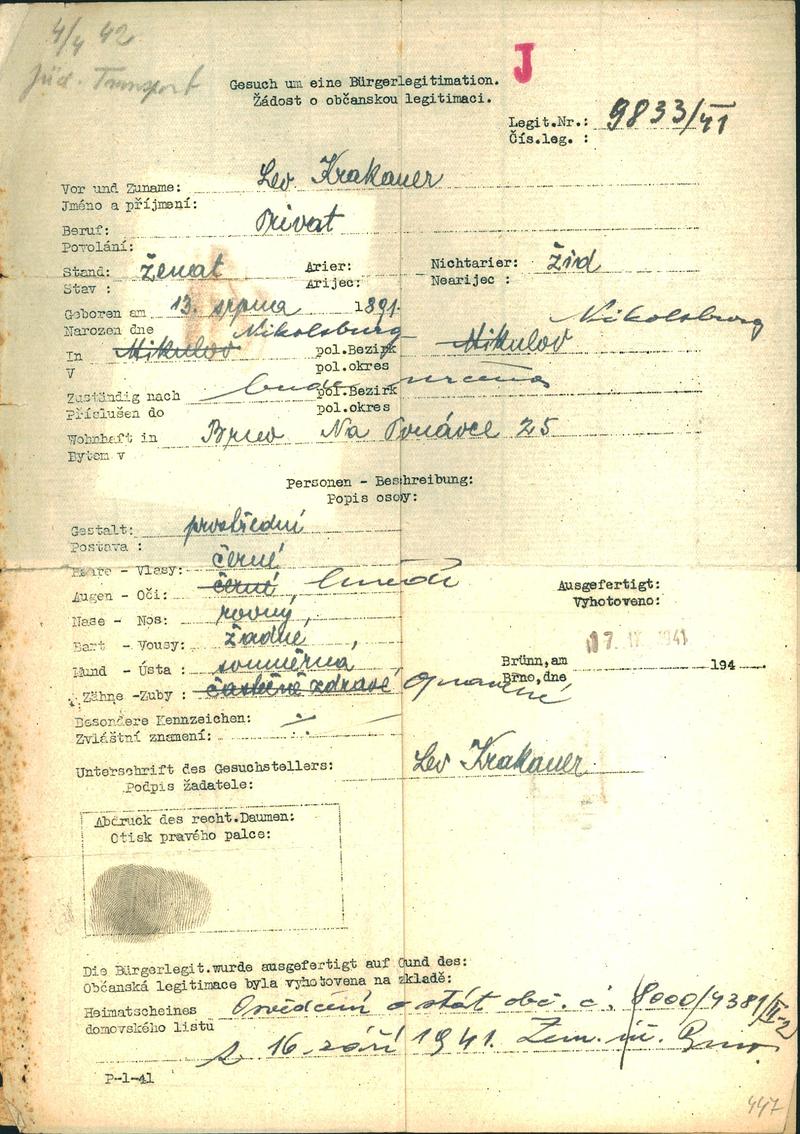 4/4 42
Jüd. Transport
J
Gesuch um eine Bürgerlegitimation.
Žádost o občanskou legitimaci.
Legit.Nr.: 9833/41
Čís.leg. :
Vor und Zuname: Lev Krakauer
Jméno a příjmení:
Beruf: Privat
Povolání:
Stand: ženat Arier: Nichtarier: Žid
Stav : Arijec: Nearijec :
Geboren am 13. srpna 1891
Narozen dne Nikolsburg Nikolsburg
In Mikulov pol.Bezirk Mikulov
V pol.okres
Zuständig nach bude určena pol.Bezirk
Příslušen do pol.okres
Wohnhaft in Brno Na Ponávce 25
Bytem v
Personen - Beschreibung:
Popis osoby:
Gestalt: prostřední
Postava :
Haare - Vlasy: černé
Augen - Oči: černé hnědé
Nase - Nos: rovný,
Bart - Vousy: žádné,
Mund - Ústa : souměrná,
Zähne -Zuby : částečně zdravé opravené
Besondere Kennzeichen:
Zvláštní znamení:
Ausgefertigt:
Vyhotoveno:
17. IX. 1941
Brünn,am 194
Brno,dne
Unterschrift des Gesuchstellers: Lev Krakauer
Podpis žadatele:
Abdruck des recht.Daumen:
Otisk pravého palce:
Die Bürgerlegit.wurde ausgefertigt auf Gund des:
Občanská legitimace byla vyhotovena na zkladě:
Heimatscheines Osvědčení o stát. obč. č. 8000/4381/II-2
domovského listu
z 16. září 1941. Zem. úř. Brno.
P-1-41
447